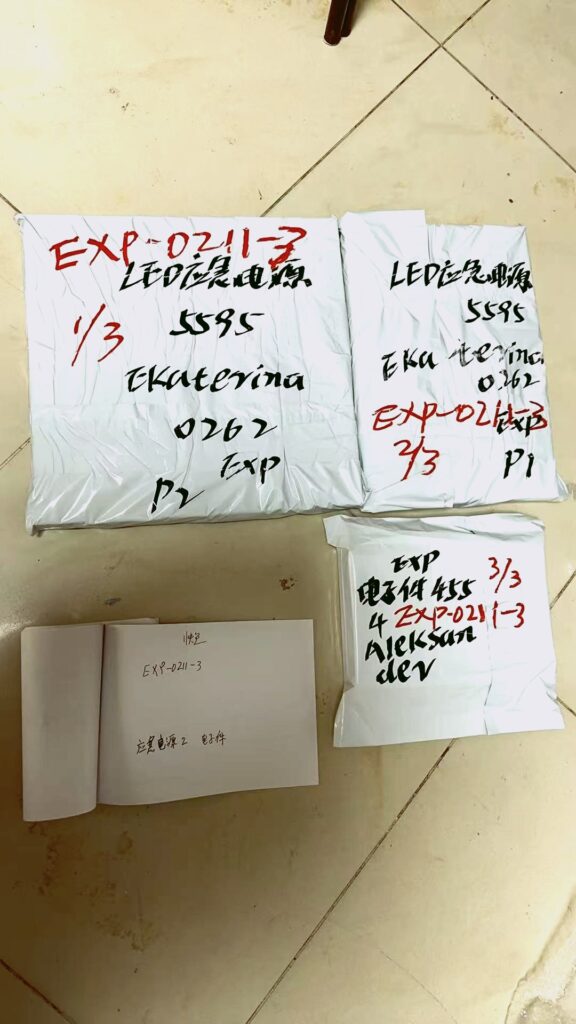 EXP-0211-3
LED应急电源
1/3
5595
Ekaterina
0262
Exp
P2
LED应急电源
5595
Ekaterina
0262
EXP-0211-3
Exp
2/3
P1
Exp
3/3
电子件 455
4 EXP-0211-3
Aleksan
der
EXP-0211-3
应急电源 2 电子件